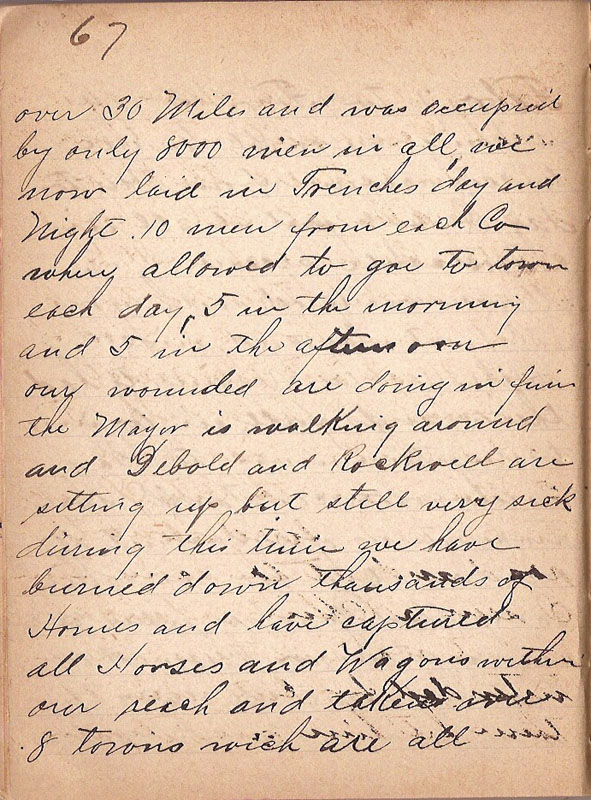 67
over 30 Miles and was occupied
by only 8000 men in all, we
now laid in Trenches day and
Night. 10 men from each Co
when allowed to goe to town
each day, 5 in the morning
and 5 in the afternoon
our wounded are doing in fine
the Mayor is walking around
and Debold and Rockwell are
sitting up but still very sick
during this time we have
burned down thousands of
Homes and have captured
all Horses and Wagons within
our reach and taken over
8 towns wich are all